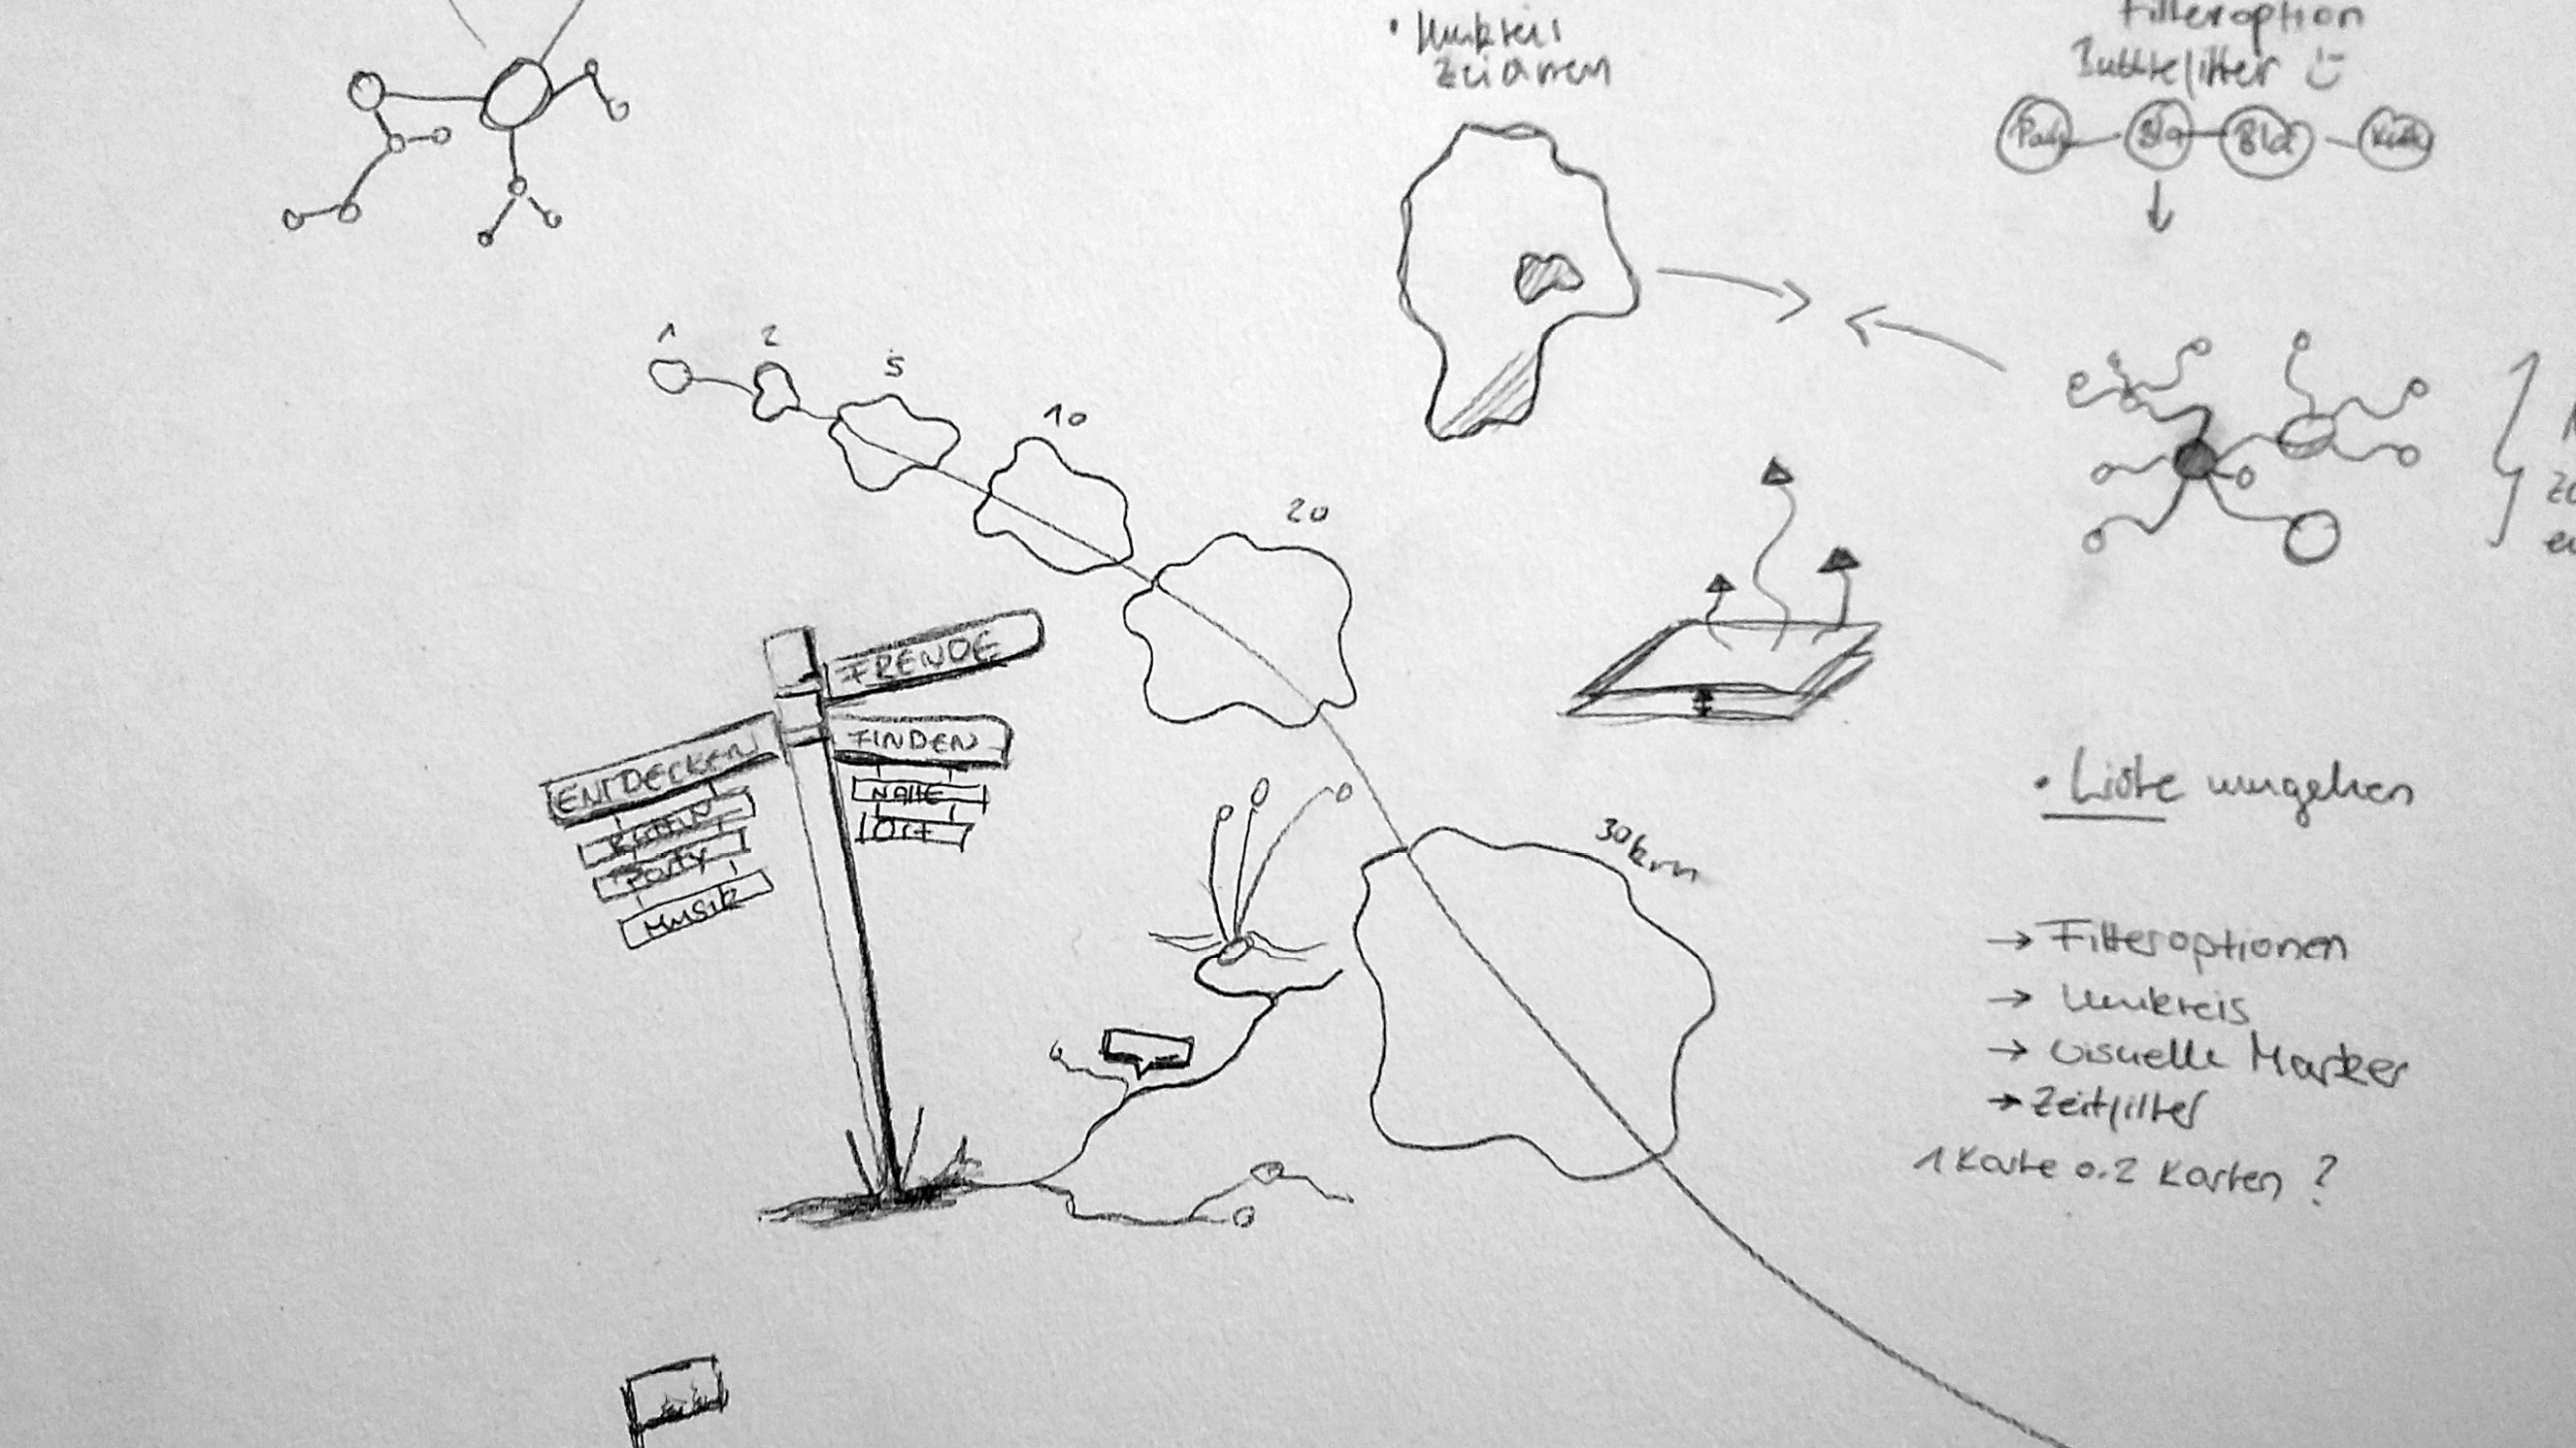 • Umkreis
Zeichnen
Filteroption
Bubblefilter
Party
Bla
Bla
1
2
5
10
20
30km
FREUNDE
FINDEN
NAME
Ort
ENTDECKEN
Party
Musik
• Liste umgehen
→ Filteroptionen
→ Umkreis
→ visuelle Marker
→ Zeitfilter
1 Karte o. 2 Karten ?